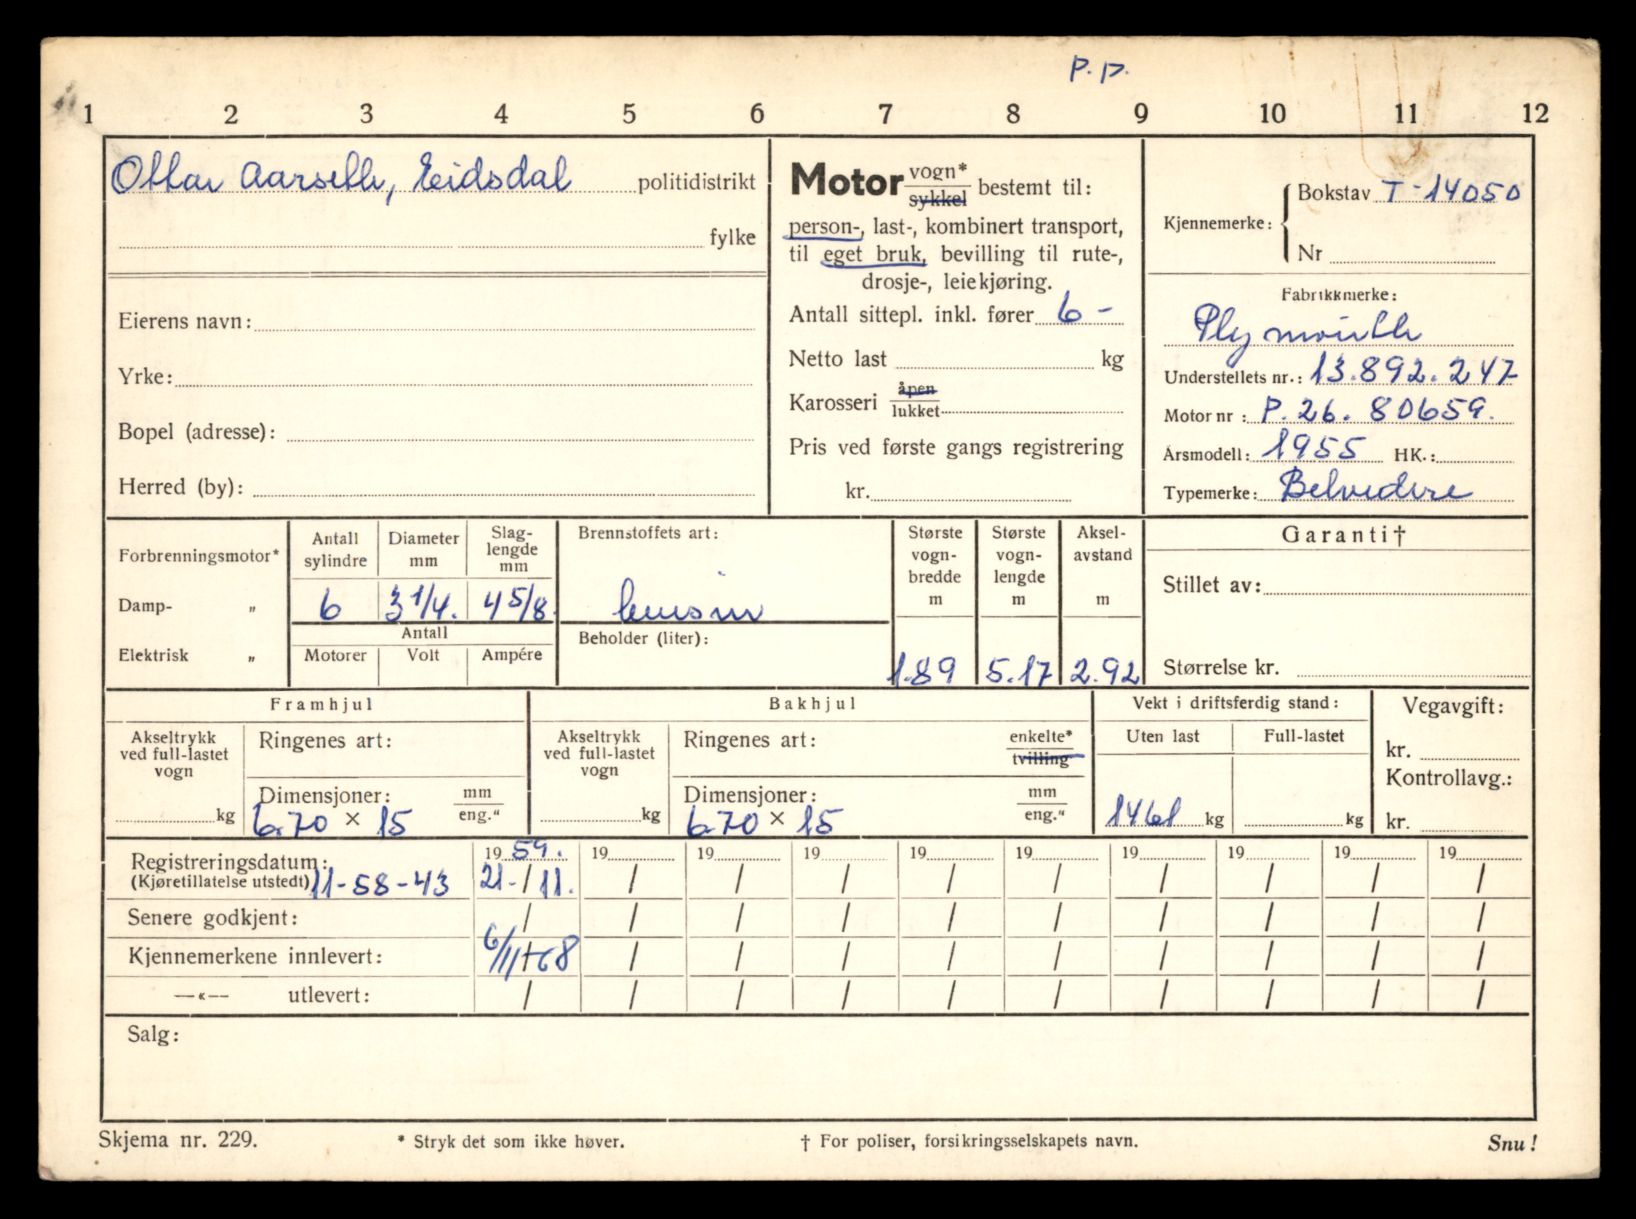 P.P.
1 2 3 4 5 6 7 8 9 10 11 12
Ottar Aarseth, Eidsdal politidistrikt
fylke
Eierens navn:
Yrke:
Bopel (adresse):
Herred (by):
Motor vogn* sykkel bestemt til:
person-, last-, kombinert transport,
til eget bruk, bevilling til rute-,
drosje-, leiekjøring.
Antall sittepl. inkl. fører 6 -
Netto last kg
Karosseri åpen lukket
Pris ved første gangs registrering
kr.
Kjennemerke: Bokstav T-14050
Nr
Fabrikkmerke:
Plymouth
Understellets nr.: 13.892.247
Motor nr : P.26. 80659.
Årsmodell: 1955 HK.:
Typemerke: Belvedere
Forbrenningsmotor*
Damp- „
Elektrisk „
Antall sylindre
Diameter mm
Slag-lengde mm
6 3 1/4. 4 5/8.
Antall
Motorer Volt Ampére
Brennstoffets art:
bensin
Beholder (liter):
Største vogn-bredde m
1.89
Største vogn-lengde m
5.17
Aksel-avstand m
2.92
Garanti†
Stillet av:
Størrelse kr.
Framhjul
Akseltrykk ved full-lastet vogn
kg
Ringenes art:
Dimensjoner: mm eng."
6.70 × 15
Bakhjul
Akseltrykk ved full-lastet vogn
kg
Ringenes art: enkelte* tvilling
Dimensjoner: mm eng."
6.70 × 15
Vekt i driftsferdig stand:
Uten last Full-lastet
1461 kg kg
Vegavgift:
kr.
Kontrollavg.:
kr.
Registreringsdatum: 19 59. 19 19 19 19 19 19 19 19 19
(Kjøretillatelse utstedt) 11-58-43 21-/11. / / / / / / / / /
Senere godkjent: / / / / / / / / / /
Kjennemerkene innlevert: 6/11-68 / / / / / / / / /
—«— utlevert: / / / / / / / / / /
Salg:
Skjema nr. 229. * Stryk det som ikke høver. † For poliser, forsikringsselskapets navn. Snu!